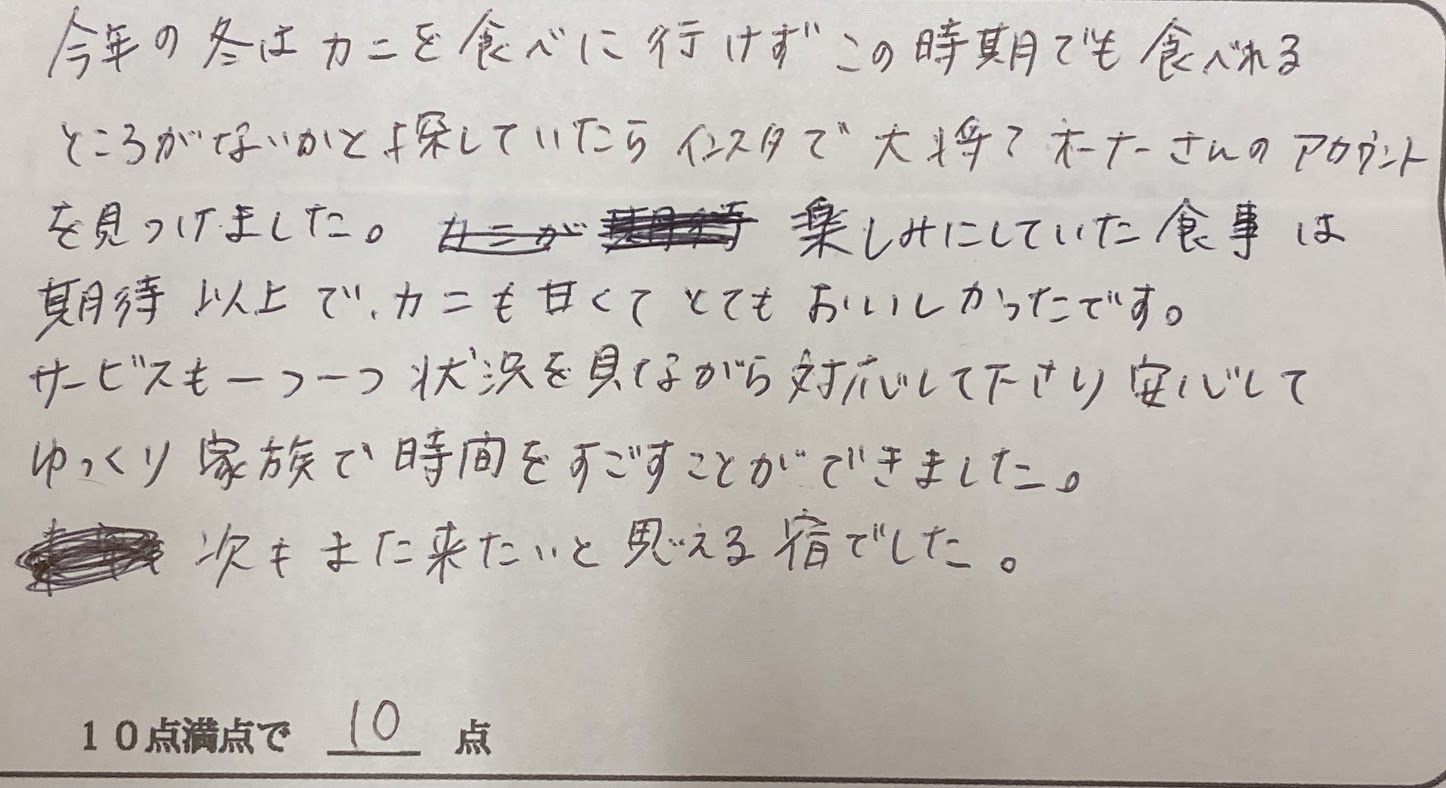 今年の冬はカニを食べに行けずこの時期でも食べれる
ところがないかと探していたらインスタで大将?オーナーさんのアカウント
を見つけました。カニが 楽しみにしていた食事は
期待以上で、カニも甘くてとてもおいしかったです。
サービスも一つ一つ状況を見ながら対応して下さり安心して
ゆっくり家族で時間をすごすことができました。
次もまた来たいと思える宿でした。
10点満点で 10 点